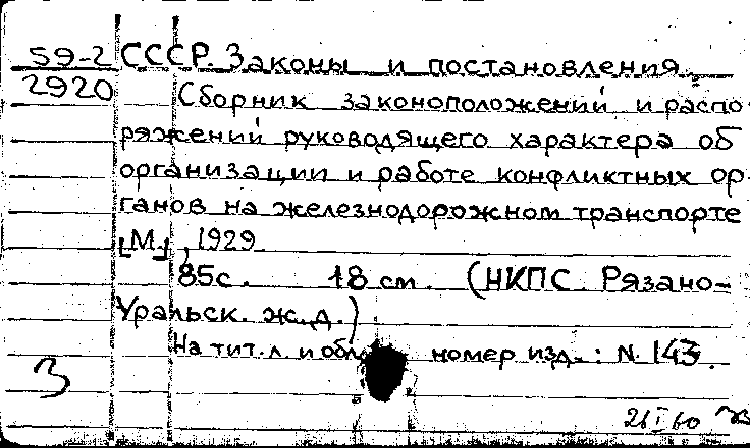 59-2 СССР. Законы и постановления.
2920 Сборник законоположений и распо-
ряжений руководящего характера об
организации и работе конфликтных ор-
ганов на железнодорожном транспорте
[М.], 1929
85с. 18 см. (НКПС. Рязано-
Уральск. ж.д.)
На тит. л. и обл. номер изд.: N. 143.
З
26 I 60